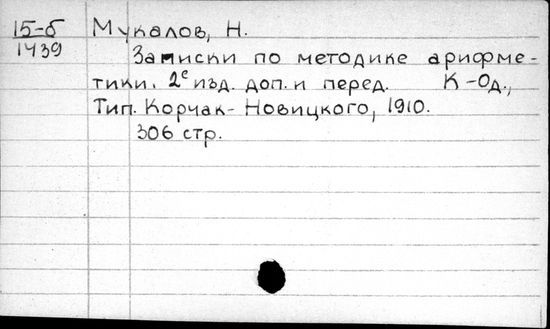 15-б Мукалов, Н.
1439
Записки по методике арифме-
тики. 2е изд. доп. и перед. К-Од.,
Тип. Корчак-Новицкого, 1910.
306 стр.